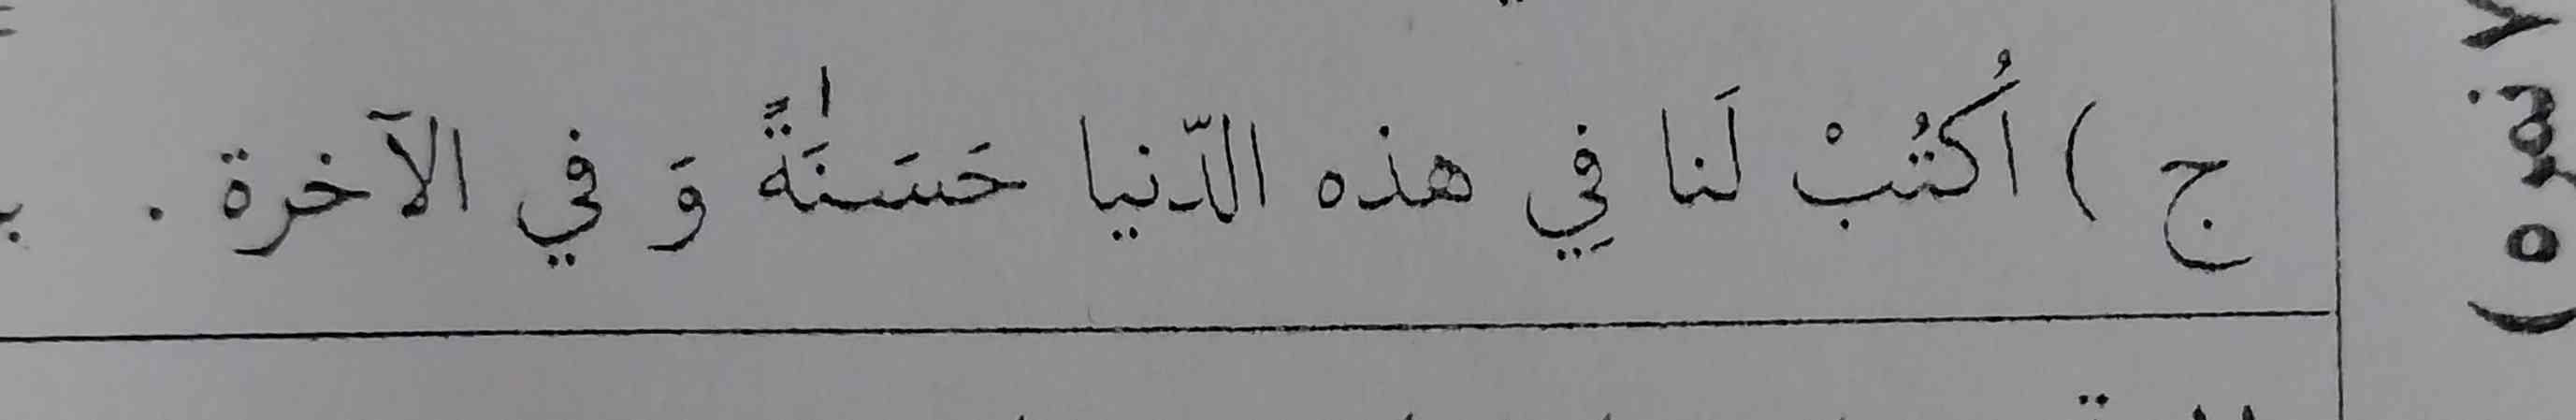 ج ) اُكتُبْ لَنا فِي هذه الدّنيا حَسَنَةً وَ في الآخرة .